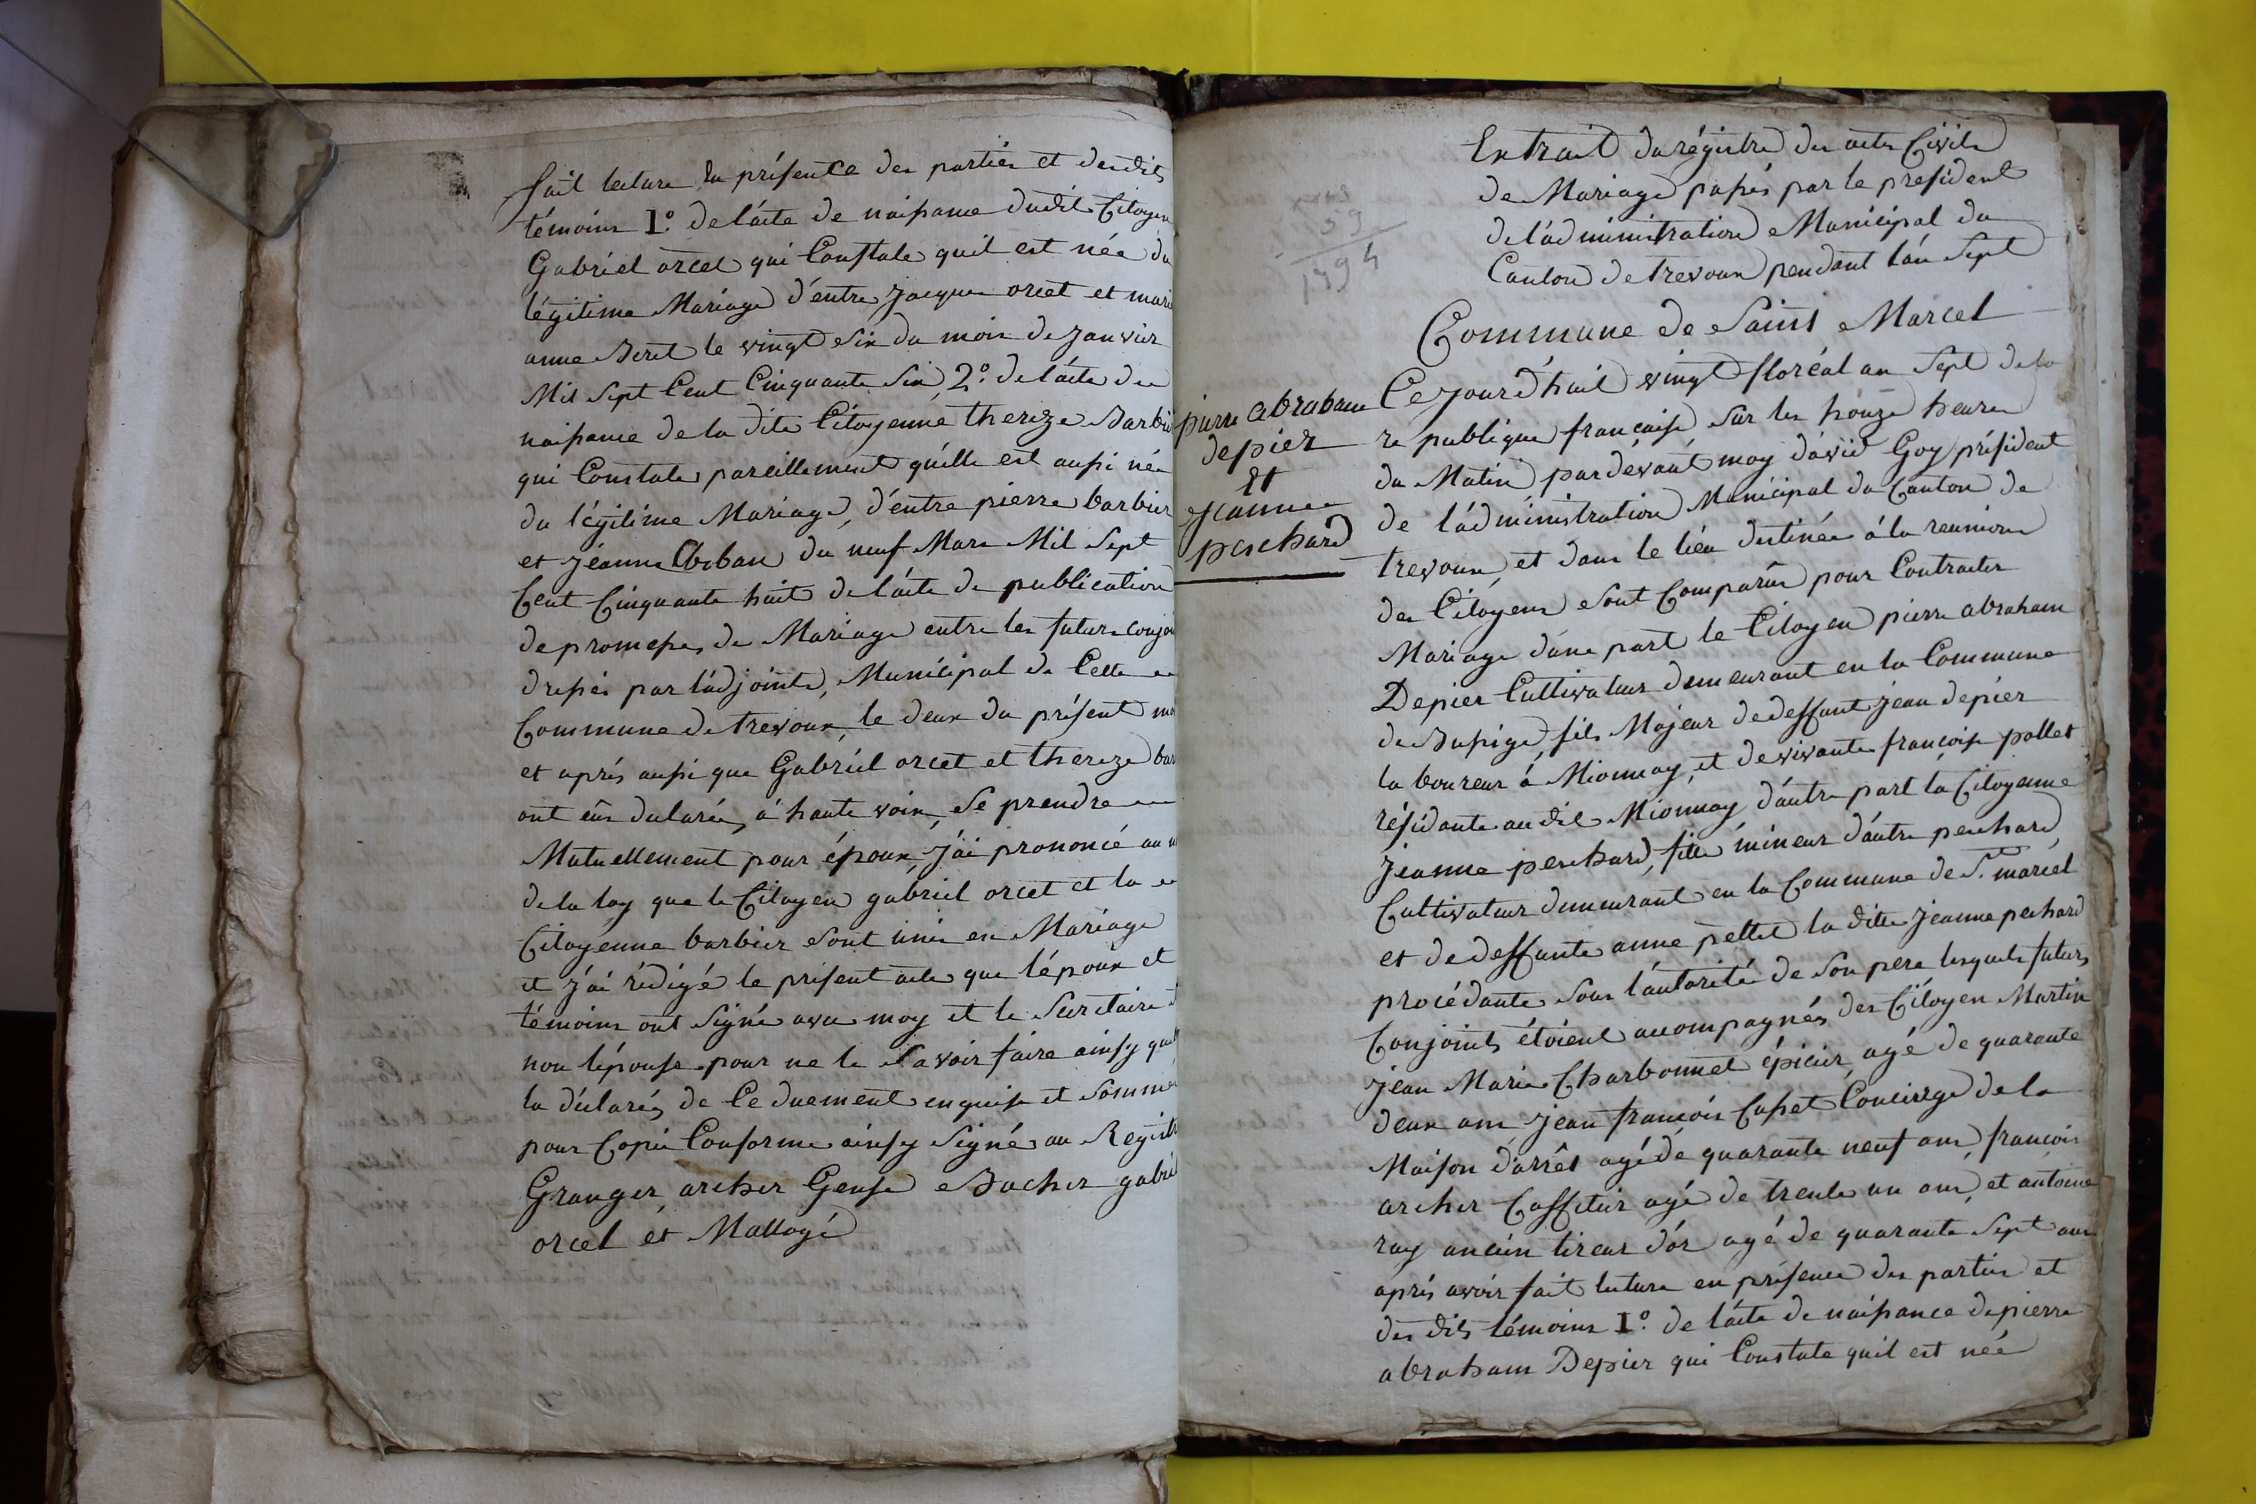 fait lecture en présence des parties et desdits
témoins 1.º de l'acte de naissance dudit Citoyen
Gabriel orcel qui Constate quil est née du
légitime Mariage d'entre Jacques orcel et marie
anne Seret le vingt Six du mois de Janvier
Mil Sept Cent Cinquante Six 2.º de l'acte de
naissance de la dite Citoyenne thereze Barbier
qui Constate pareillement quelle est aussi née
du légitime Mariage, d'entre pierre barbier
et jeanne du neuf Mars Mil Sept
Cent Cinquante huit de l'acte de publication
de promesses de Mariage entre les futurs conjoi
dressés par l'adjoint, Municipal de Cette
Commune de trevoux, le deux du présent moi
et après aussi que Gabriel orcel et thereze bar
ont eûs declarés, à haute voix, Se prendre
Mutuellement pour époux, j'ai prononcé au n
de la loy que le Citoyen gabriel orcel et la
Citoyenne barbier Sont unis en Mariage
et j'ai rédigé le présent acte que l'époux et
témoins ont Signé avec moy et le Secretaire
non l'épouse pour ne le Savoir faire ainsy quel
la déclarés de Ce duement enquise et Sommé
pour Copie Conforme ainsy Signé au Registre
Granger, archer Gense Bacher gabriel
orcel et Mallogé
Extrait du régistre des actes Civils
de Mariage passés par le president
de l'administration Municipal du
Canton de trevoux pendant l'an Sept
59
1794
Commune de Saint Marcel
pierre abraham
depier
et
Jeanne
perchard
Ce jourd'huit vingt floréal an Sept de la
republique française Sur les honze heures
du Matin pardevant moy david Goy président
de l'administration Municipal du Canton de
trevoux, et dans le lieu destinée à la reunion
des Citoyens Sont Comparûs pour Contracter
Mariage d'une part le Citoyen pierre abraham
Depier Cultivateur demeurant en la Commune
de Bussige fils Majeur de deffunt jean depier
laboureur à Mionnay, et de vivante françoise pollet
résidante audit Mionnay d'autre part la Citoyenne
jeanne perchard, fille mineur d'autre perchard
Cultivateur demeurant en la Commune de St. marcel
et de deffunte anne pellet la ditte jeanne perhard
procédante Sous l'autorité de Son pere lesquels futurs
Conjoints étoient accompagnés des Citoyen Martin
jean Marie Charbonnet épicier, agé de quarante
deux ans jean françois Cupet Concierge de la
Maison d'arrêt agé de quarante neuf ans, françois
archer Caffetier agé de trente un ans, et antoine
ray ancien tireur d'or agé de quarante Sept ans
après avoir fait lecture en présence des parties et
des dits témoins 1.º de l'acte de naissance de pierre
abraham Depier qui Constate quil est née